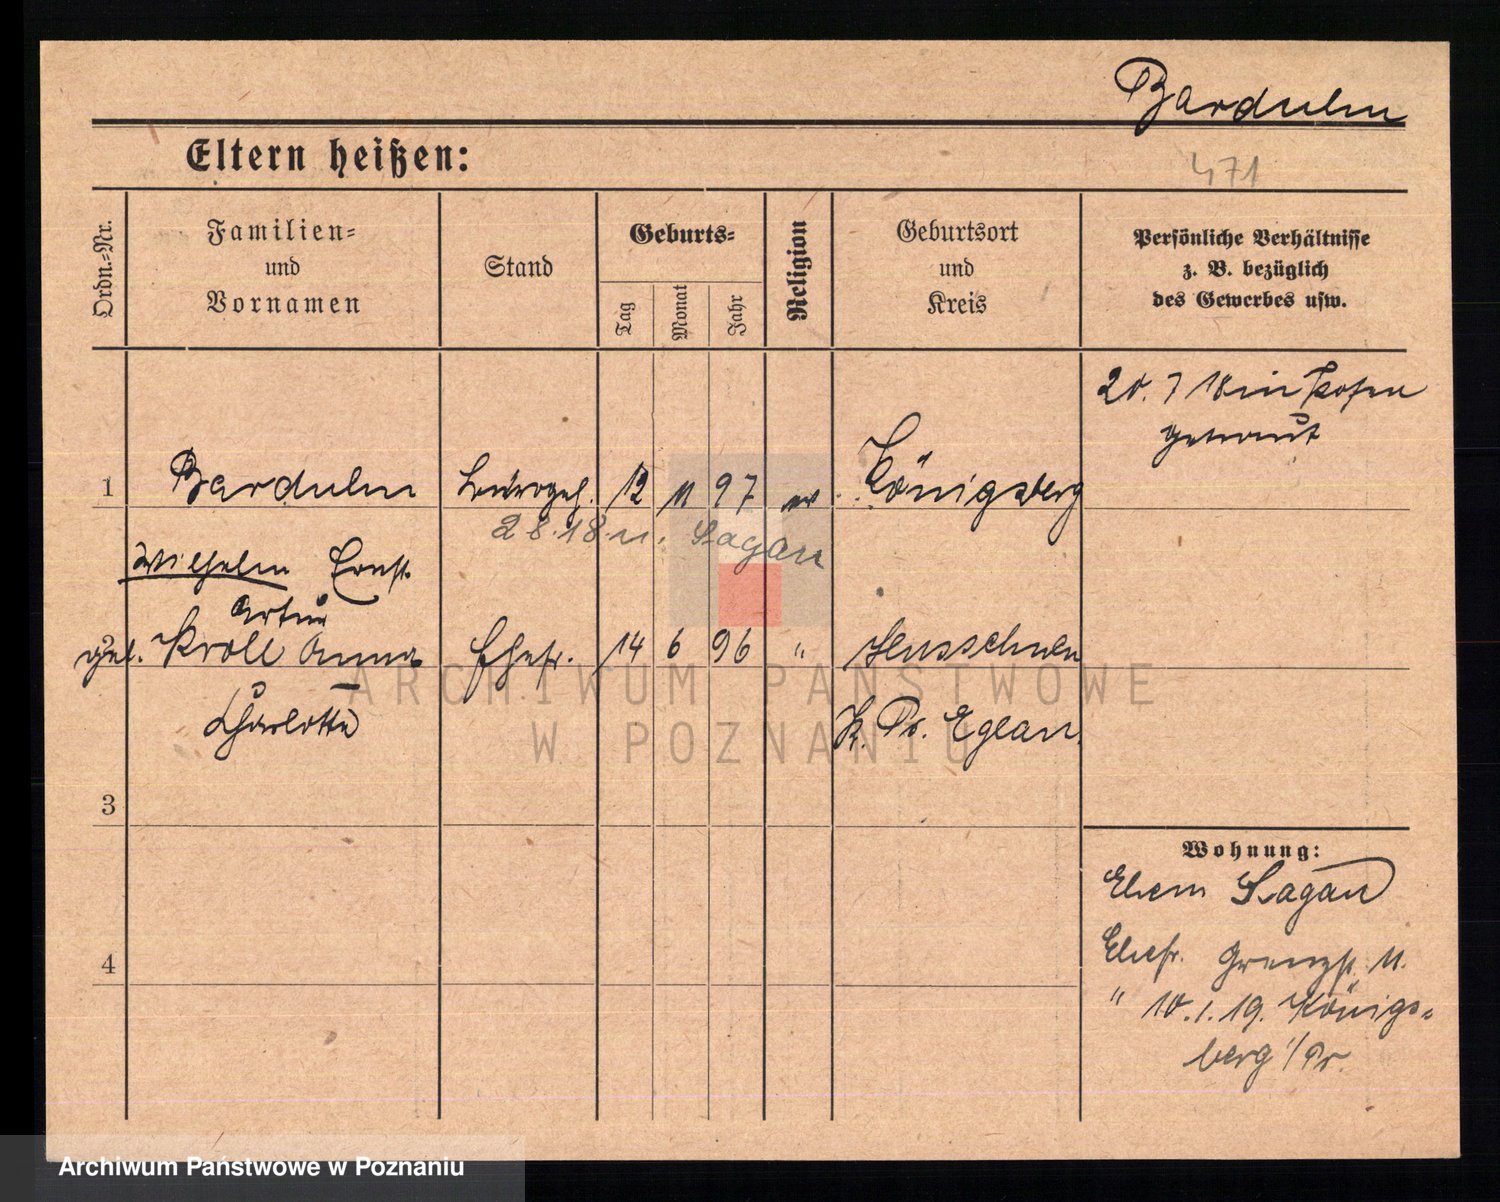 Barduhn
Eltern heißen:
471
Ordn.-Nr.
Familien-
und
Vornamen
Stand
Geburts-
Tag
Monat
Jahr
Religion
Geburtsort
und
Kreis
Persönliche Verhältnisse
z. B. bezüglich
des Gewerbes usw.
20. 7 18 in Posen
getraut
1 Barduhn Bürogeh. 12 11 97 ev Königsberg
28.18 n. Sagan
Wilhelm Ernst
Artur
2 geb. Kroll Anna Ehefr. 14 6 96 "
Charlotte
K. Pr. Eylau.
3
Wohnung:
Ehem Sagan
4
Ehefr. Grenzst. 11.
" 10.1.19. Königs-
berg i/Pr.
ARCHIWUM PAŃSTWOWE
W POZNANIU
Archiwum Państwowe w Poznaniu